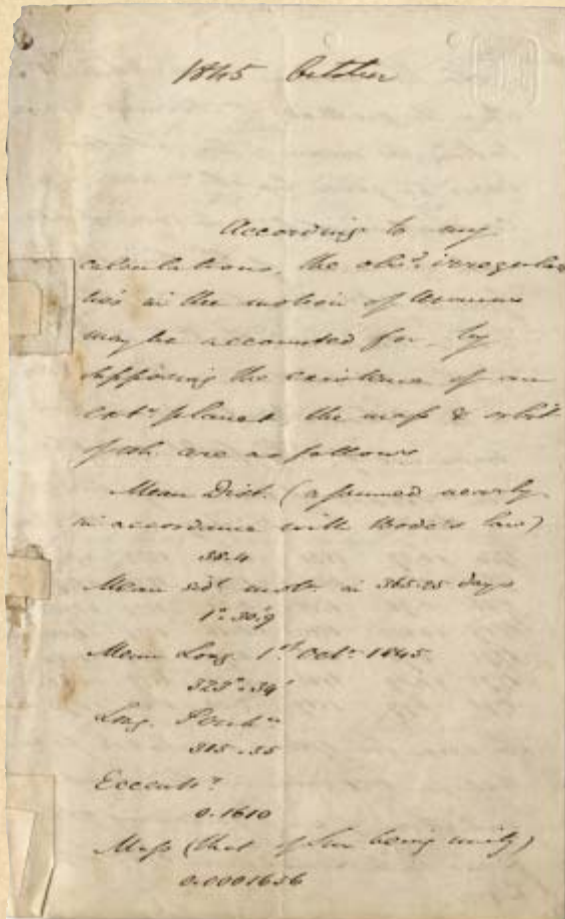 1845 October
According to my
calculations, the obsd. irregulari-
ties in the motion of Uranus
may be accounted for, by
supposing the existence of an
extr. planet, the mass & orbit
of wh. are as follows
Mean Dist. (assumed nearly
in accordance with Bode's law)
38.4
Mean sidl. mot. in 365.25 days
1°.30'.9
Mean Long. 1st Octr. 1845
323°.34'
Long. Perihn.
315.55
Eccentr.
0.1610
Mass (that of Sun being unity)
0.0001656